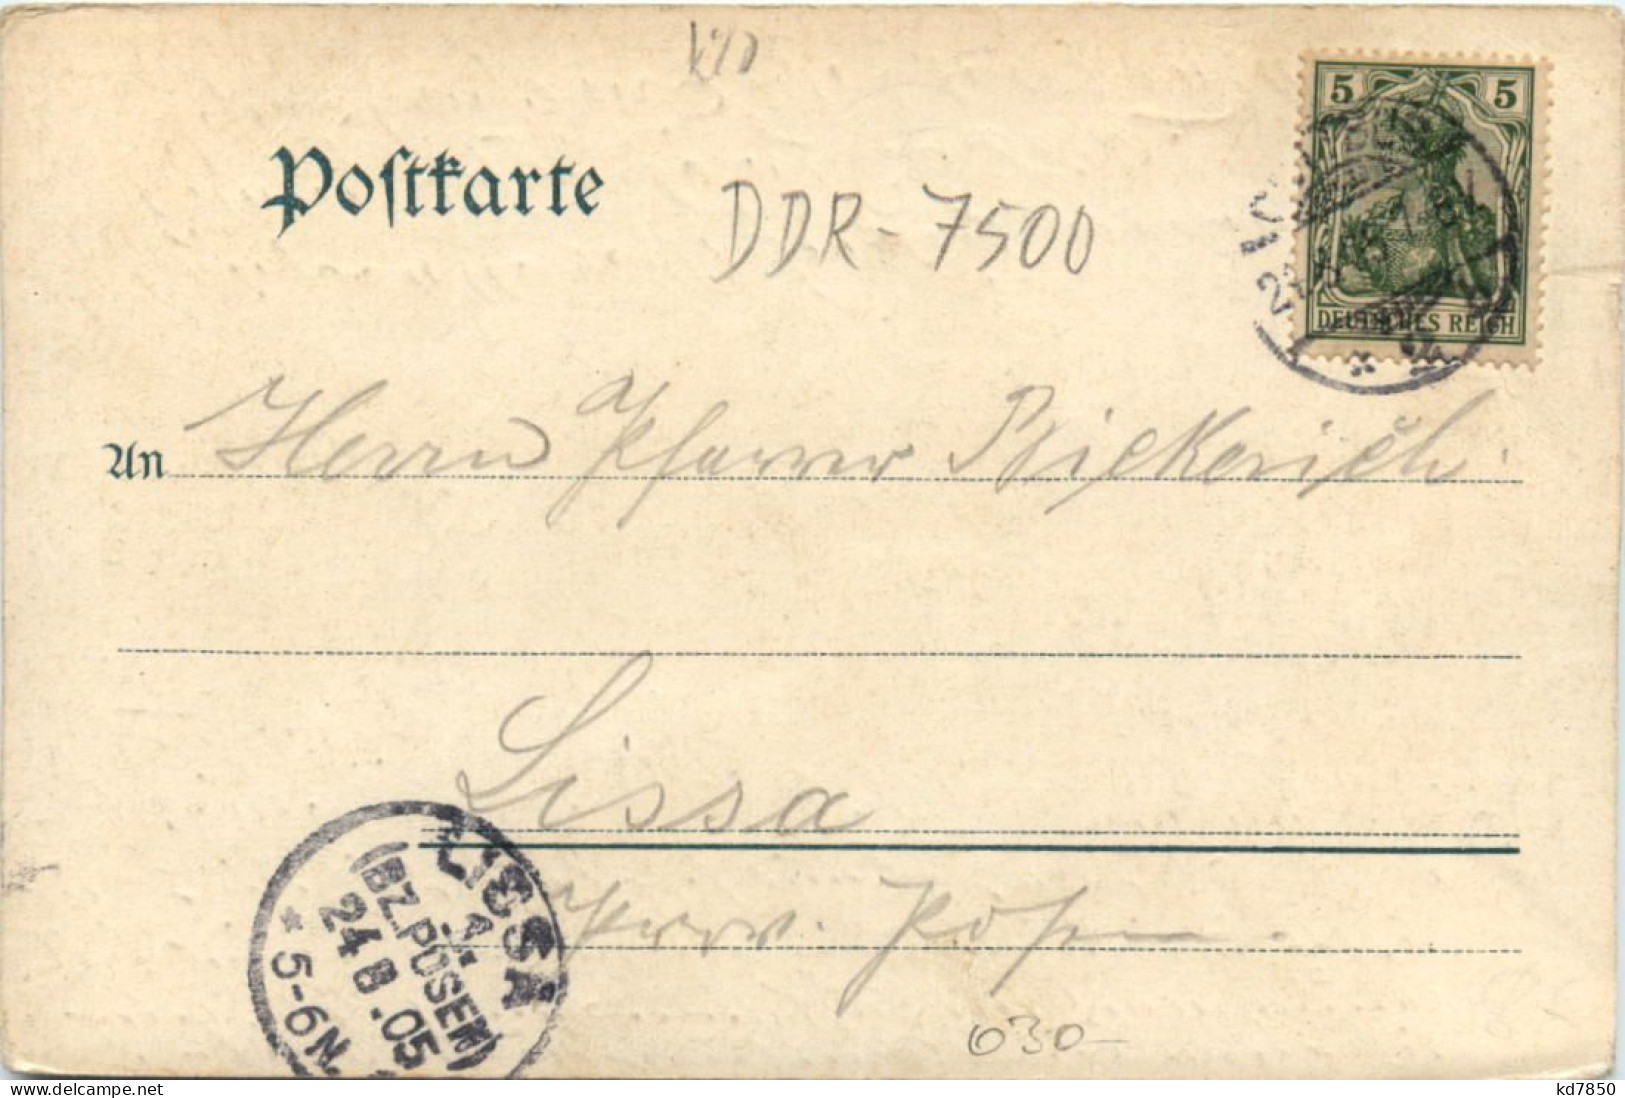 Postkarte
DDR-7500
5 5
DEUTSCHES REICH
An Herrn Pfarrer Bickerich.
Lissa
Prov. Posen.
LISSA
(BZ. POSEN)
24 8.05
* 5-6N.
030-
kd7850